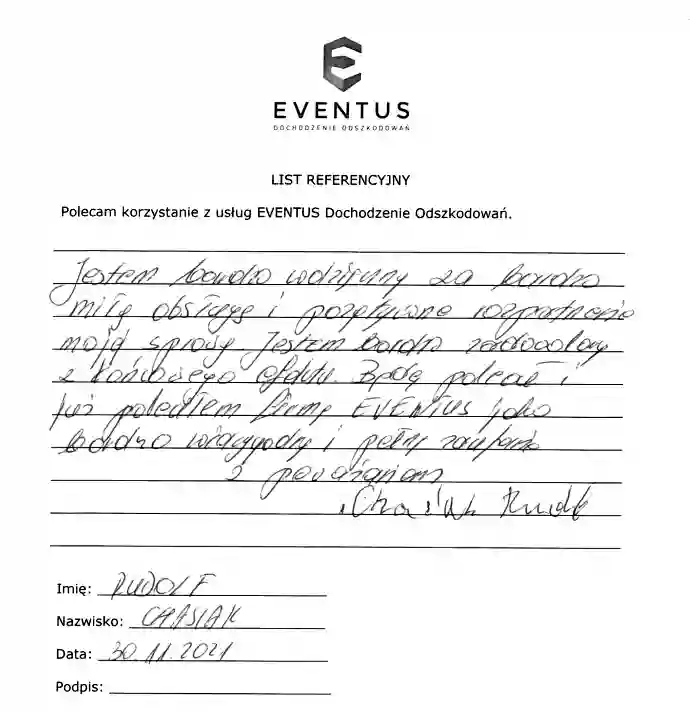 EVENTUS
DOCHODZENIE ODSZKODOWAŃ
LIST REFERENCYJNY
Polecam korzystanie z usług EVENTUS Dochodzenie Odszkodowań.
Jestem bardzo wdzięczny za bardzo
miłą obsługę i pozytywne rozpatrzenie
moją sprawy. Jestem bardzo zadowolony
z końcowego efektu. Będę polecał i
już poleciłem firmę EVENTUS jako
bardzo wiarygodny i pełny zaufania
Z poważaniem
Imię: RUDOLF
Nazwisko:
Data: 30.11.2021
Podpis: